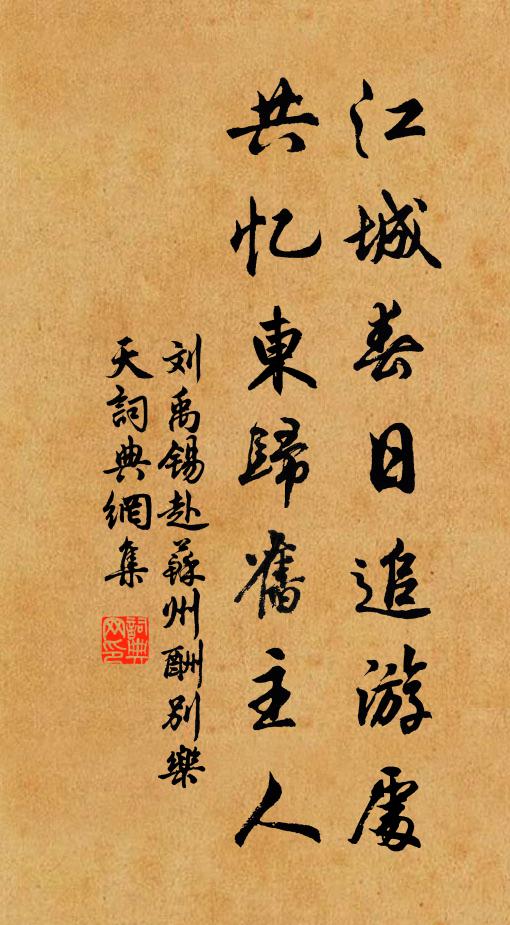 江城春日追游處
共忆東歸舊主人
刘禹錫赴蘇州酬别樂
天詞典網集
詞典
网印